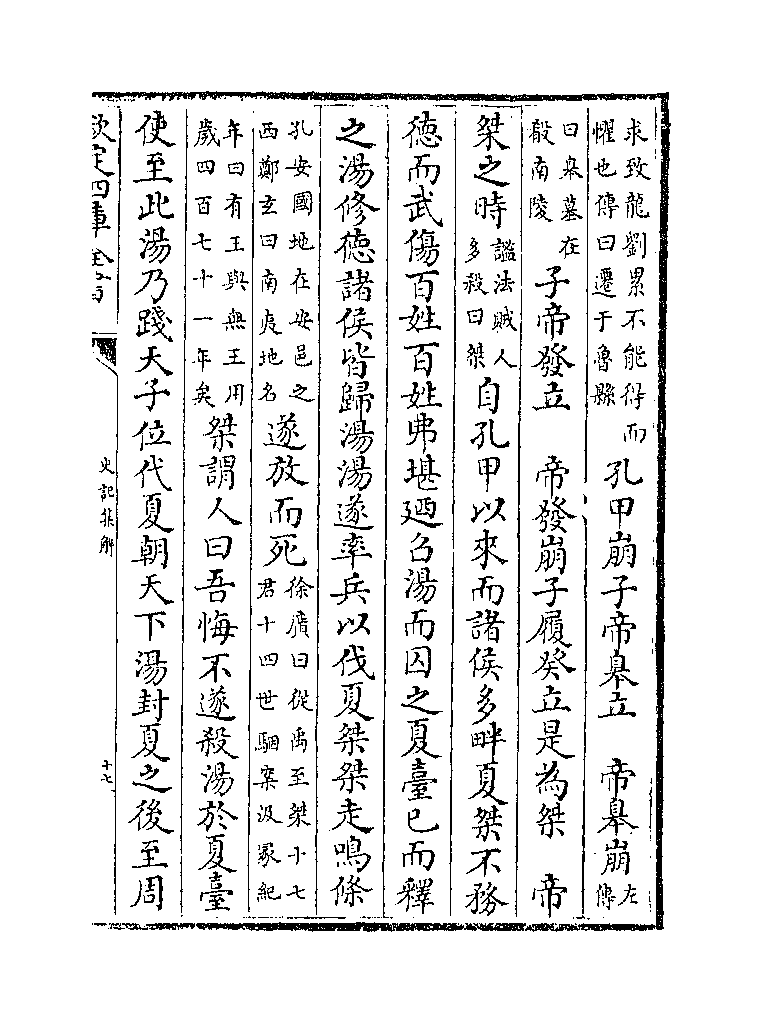 求致龍劉累不能得而懼也傳曰遷于魯縣孔甲崩子帝皋立　帝皋崩左傳
曰皋墓在殽南陵子帝發立　帝發崩子履癸立是為桀　帝
桀之時諡法賊人多殺曰桀自孔甲以來而諸侯多畔夏桀不務
德而武傷百姓百姓弗堪廼召湯而囚之夏臺已而釋
之湯修德諸侯皆歸湯湯遂率兵以伐夏桀桀走鳴條
孔安國地在安邑之西鄭玄曰南夷地名遂放而死徐廣曰從禹至桀十七君十四世駰案汲冢紀
年曰有王與無王用歲四百七十一年矣桀謂人曰吾悔不遂殺湯於夏臺
使至此湯乃踐天子位代夏朝天下湯封夏之後至周
欽定四庫全書
史記集解
十七